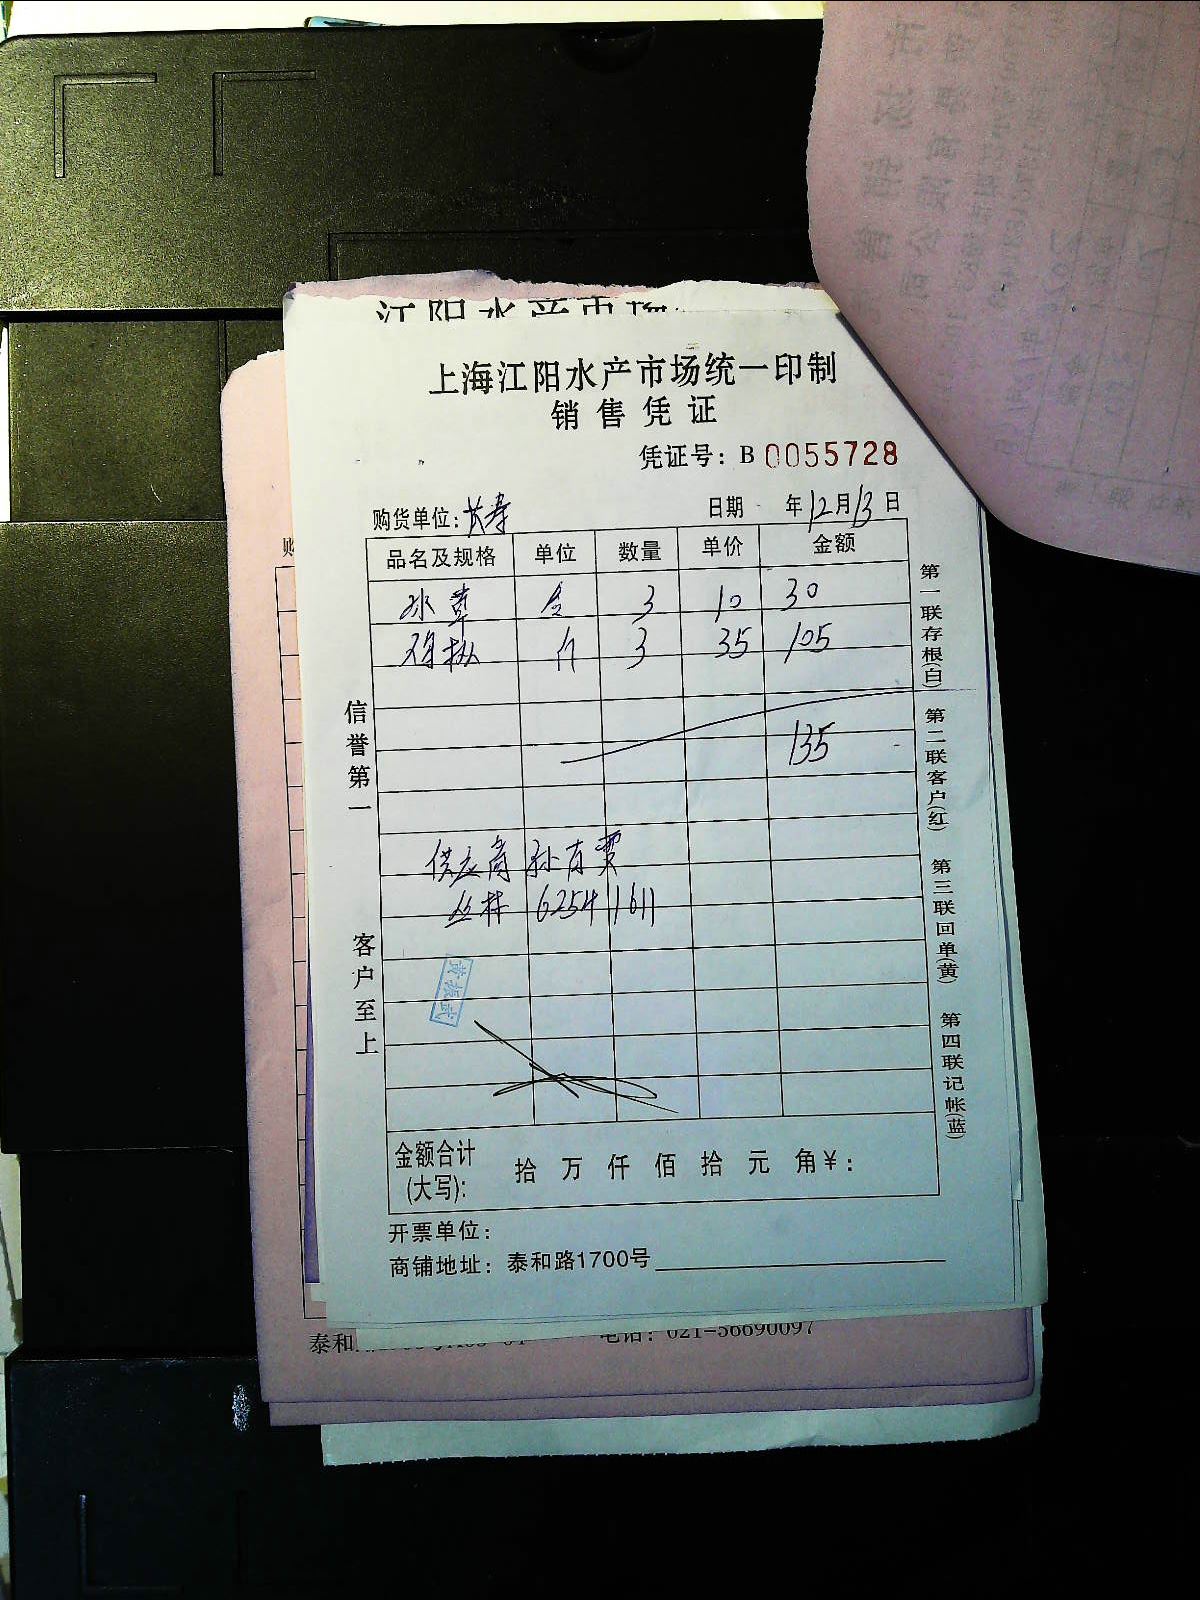 江阳水产市场
上海江阳水产市场统一印制
销售凭证
凭证号：B 0055728
购货单位：长寿 日期 年12月13日
品名及规格 单位 数量 单价 金额
冰草 3 10 30
鸡枞 3 35 105
135
供应商 孙有贾
丛林 62541611
黄振武
金额合计
(大写)： 拾 万 仟 佰 拾 元 角 ¥：
开票单位：
商铺地址：泰和路1700号
信誉第一
客户至上
第一联存根(白)
第二联客户(红)
第三联回单(黄)
第四联记帐(蓝)
购
泰和
电话：021-56690097